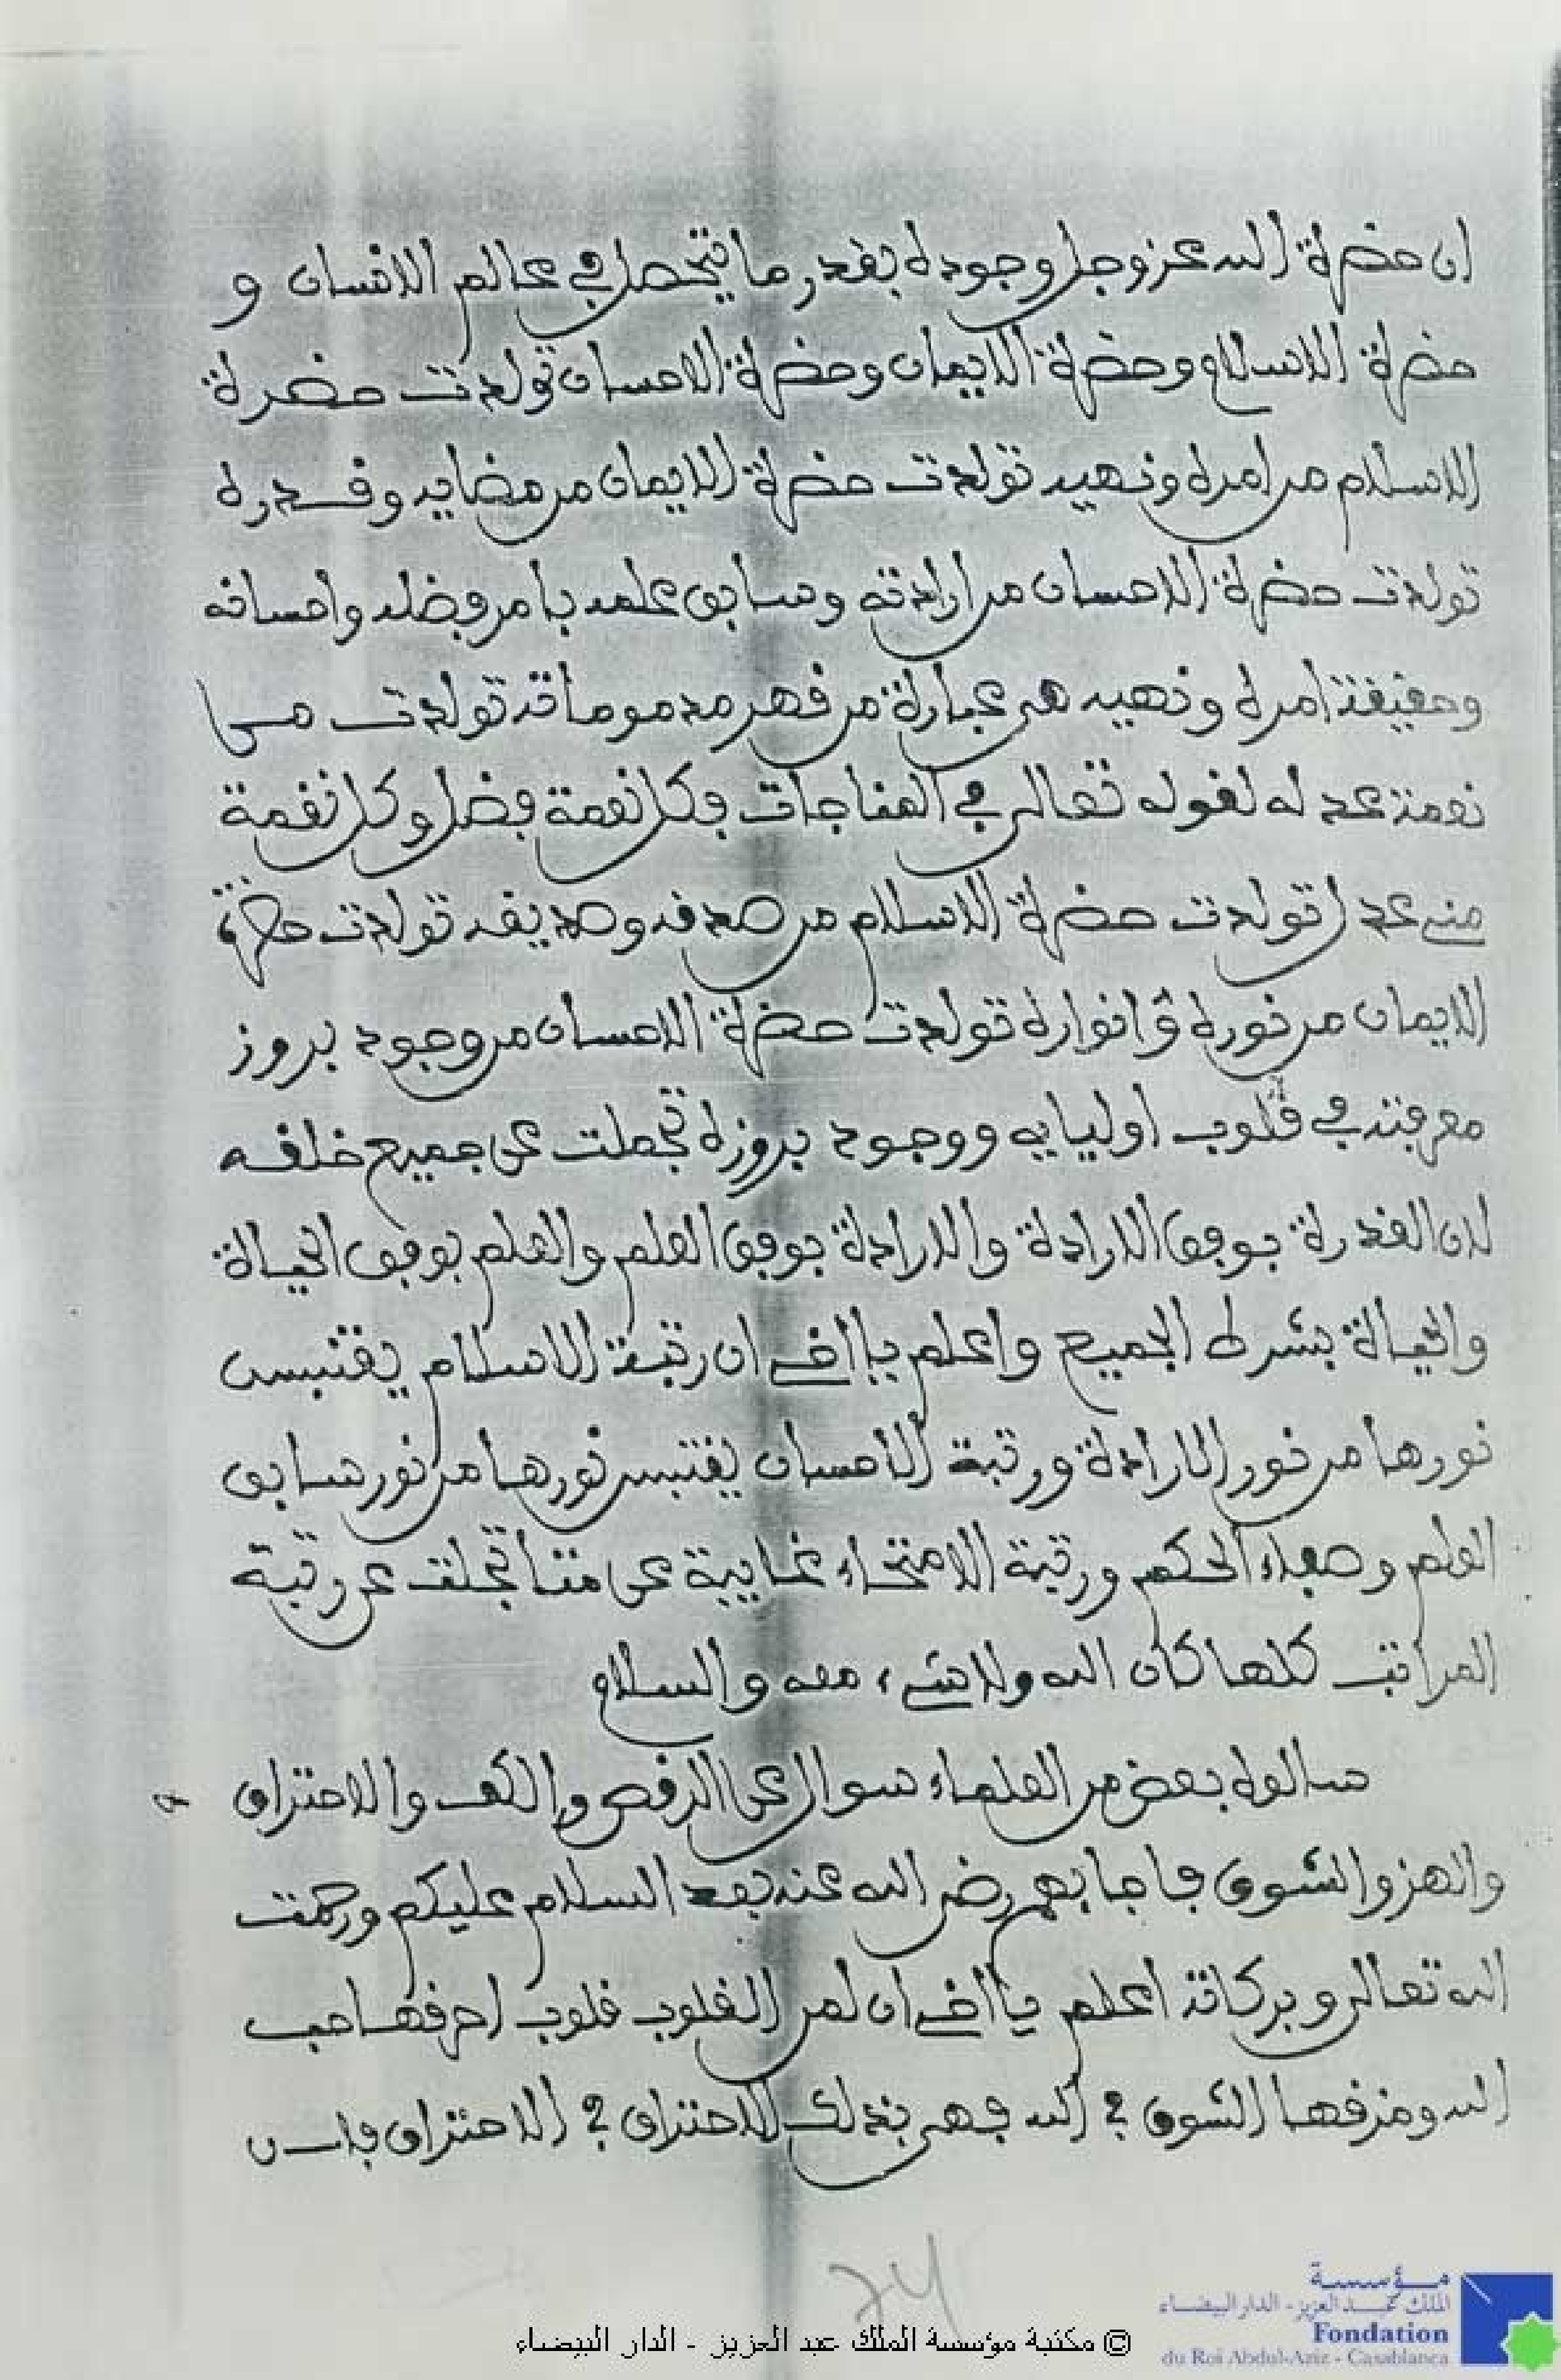 ان حضرة الله عز وجل وجوده بقدر ما يتحصل في عالم الانسان و
حضرة الاسلام وحضرة الايمان وحضرة الاحسان تولدت حضرة
الاسلام من امره ونهيه تولدت حضرة الايمان من قضايه وقدره
تولدت حضرة الاحسان من ارادته وسابق علمه بامر وفضله واحسانه
وحقيقة امره ونهيه هي عبارة من قهر مذموماته تولدت مـن
نعمة عدله لقوله تعالى في المناجات فكل نعمة فضل وكل نقمة
منى عدل تولدت حضرة الاسلام من صدقه وصديقه تولدت حضرة
الايمان من نوره وانواره تولدت حضرة الاحسان من وجود بروز
معرفته في قلوب اوليايه ووجود بروزه تجملت على جميع خلقه
لان القدرة بوفق الارادة والارادة بوفق العلم والعلم بوفق الحياة
والحياة بشرط الجميع واعلم يااخى ان رتبة الاسلام يقتبس
نورها من نور الارادة ورتبة الاحسان يقتبس نورها من نور سابق
العلم وصفاء الحكم ورتبة الامتحاء غايبة على تجلت عن رتبة
المراتب كلها كان الله ولا شيء معه والسلام
سالوه بعض من العلماء سوال على الرقص والكف والاحتراق
والهز والشوق فاجابهم رضي الله عنه بعد السلام عليكم ورحمت
الله تعالى وبركاته اعلم يااخى ان لمن القلوب قلوب احرقها حب
الله ومزقها الشوق في الله فهي بذلك الاحتراق في الاحتراق
24
© مكتبة مؤسسة الملك عبد العزيز - الدار البيضاء
مؤسسة
الملك عبد العزيز - الدار البيضاء
Fondation
du Roi Abdul-Aziz - Casablanca